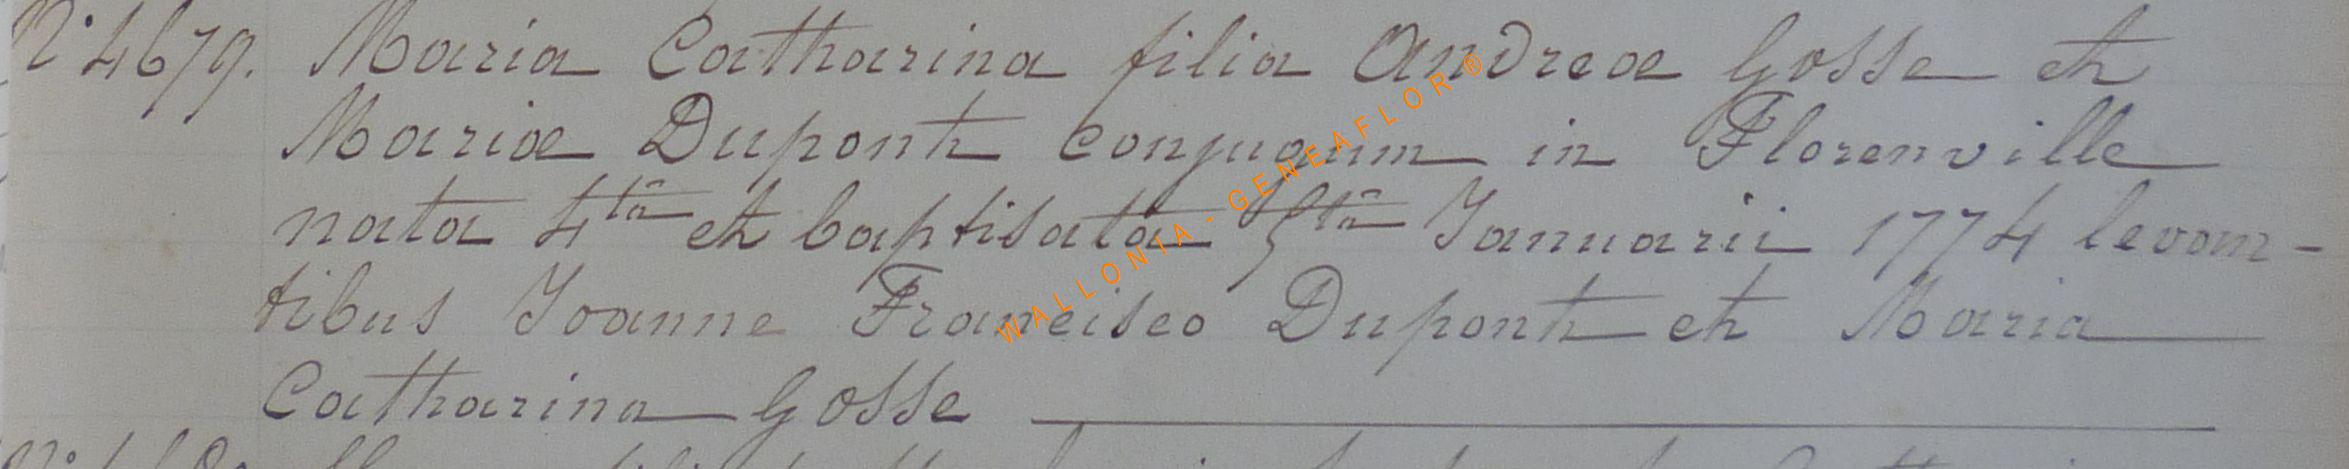 N° 4679. Maria Catharina filia Andreæ Gosse et
Mariæ Dupont conjugum in Florenville
nata 4tâ et baptisata 5tâ Januarii 1774 levan-
tibus Joanne Francisco Dupont et Maria
Catharina Gosse
WALLONIA - GENEAFLOR ®